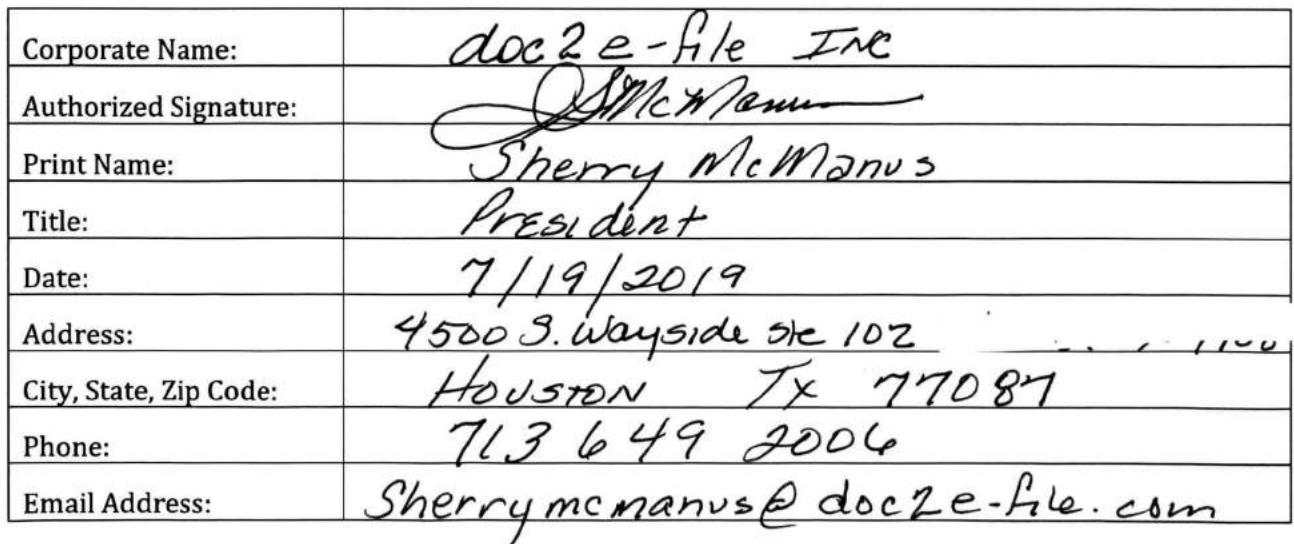 Corporate Name: doc2e-file INC
Authorized Signature: SMcManus
Print Name: Sherry McManus
Title: President
Date: 7/19/2019
Address: 4500 S. Wayside ste 102
City, State, Zip Code: HOUSTON TX 77087
Phone: 713 649 2006
Email Address: Sherrymcmanus@doc2e-file.com